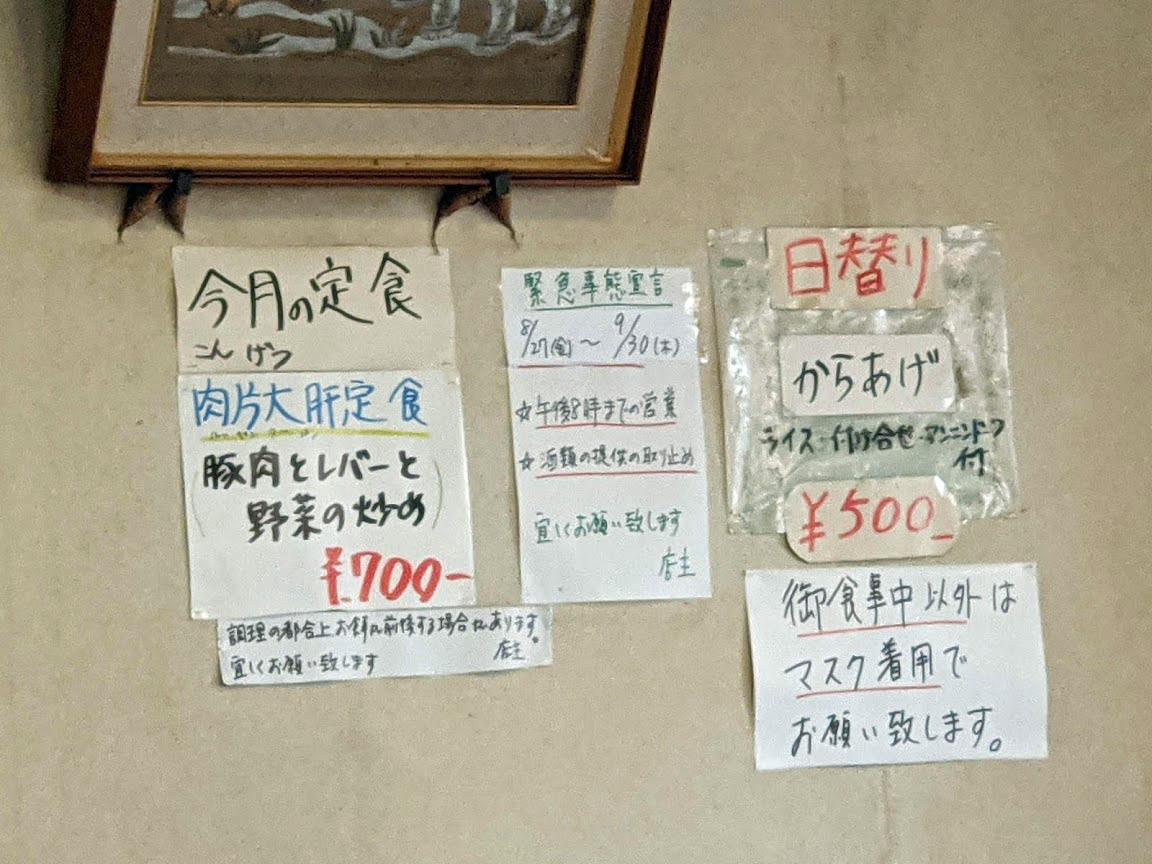 今月の定食
こんげつ
肉片大肝定食
(豚肉とレバーと
野菜の炒め)
¥700-
調理の都合上お料理前後する場合もあります。
宜しくお願い致します 店主
緊急事態宣言
8/27(金)〜9/30(木)
☆午後8時までの営業
☆酒類の提供の取り止め
宜しくお願い致します
店主
日替り
からあげ
ライス・付け合せ・アンニンドーフ
付
¥500-
御食事中以外は
マスク着用で
お願い致します。